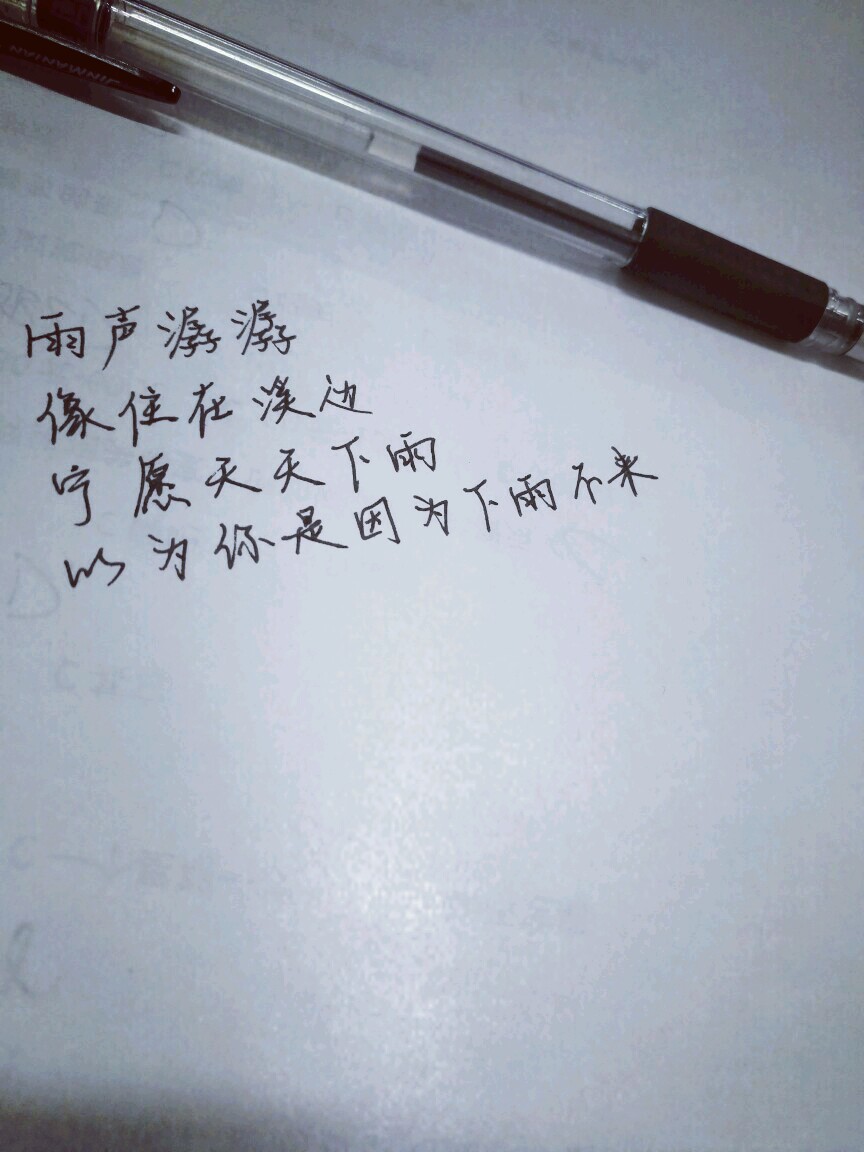 JINMANNIAN
雨声潺潺
像住在溪边
宁愿天天下雨
以为你是因为下雨不来